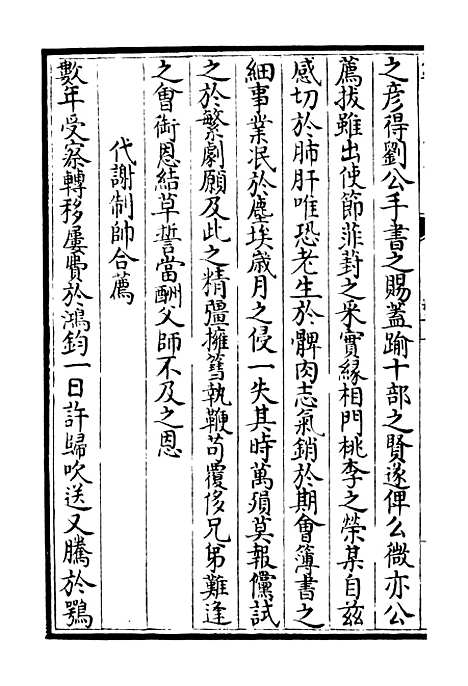 之彦得劉公手書之賜蓋踰十部之賢遂俾么微亦公
薦拔雖出使節葑菲之釆實緣相門桃李之榮某自兹
感切於肺肝唯恐老生於髀肉志氣銷於期會簿書之
細事業泯於塵埃歳月之侵一失其時萬殞莫報儻試
之於繁劇願及此之精彊擁篲執鞭苟覆侈兄弟難逢
之會銜恩結草誓當酬父師不及之恩
代謝制帥合薦
數年受察轉移屢費於鴻鈞一日許歸吹送又騰於鶚